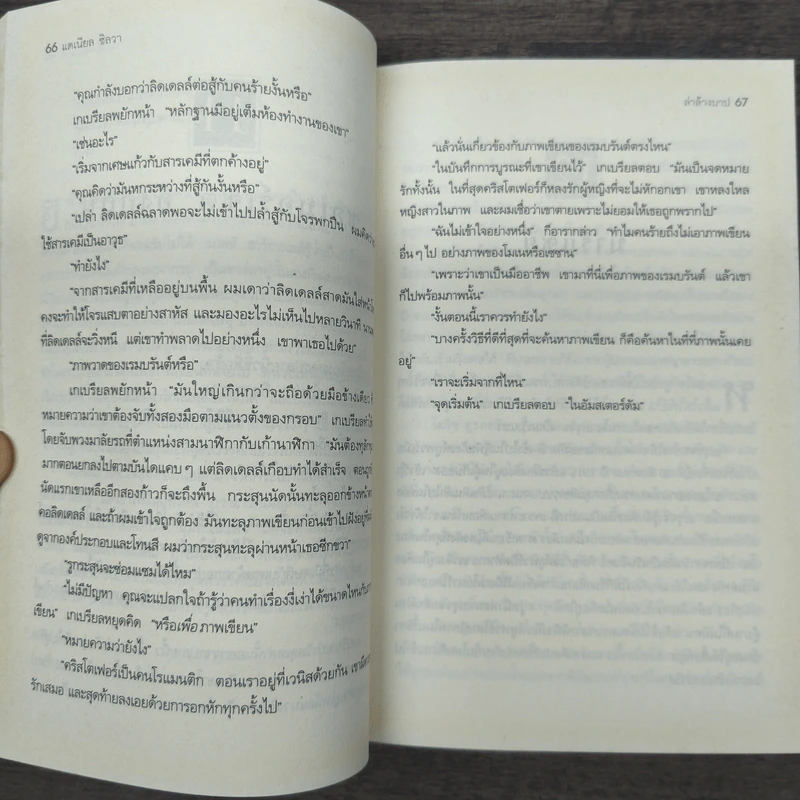 66 แดเนียล ซิลวา
"คุณกำลังบอกว่าลิดเดลล์ต่อสู้กับคนร้ายงั้นหรือ"
เกเบรียลพยักหน้า "หลักฐานมีอยู่เต็มห้องทำงานของเขา"
"เช่นอะไร"
"เริ่มจากเศษแก้วกับสารเคมีที่ตกค้างอยู่"
"คุณคิดว่ามันหกระหว่างที่สู้กันงั้นหรือ"
"เปล่า ลิดเดลล์ฉลาดพอจะไม่เข้าไปปล้ำสู้กับโจรพกปืน ผมคิดว่า
ใช้สารเคมีเป็นอาวุธ"
"ทำยังไง"
"จากสารเคมีที่เหลืออยู่บนพื้น ผมเดาว่าลิดเดลล์สาดมันใส่หน้า
คงจะทำให้โจรแสบตาอย่างสาหัส และมองอะไรไม่เห็นไปหลายวินาที
ที่ลิดเดลล์จะวิ่งหนี แต่เขาทำพลาดไปอย่างหนึ่ง เขาพาเธอไปด้วย"
"ภาพวาดของเรมบรันต์หรือ"
เกเบรียลพยักหน้า "มันใหญ่เกินกว่าจะถือด้วยมือข้างเดียว
หมายความว่าเขาต้องจับทั้งสองมือตามแนวตั้งของกรอบ" เกเบรียล
โดยจับพวงมาลัยรถที่ตำแหน่งสามนาฬิกากับเก้านาฬิกา "มันต้อง
มากตอนยกลงไปตามบันไดแคบๆ แต่ลิดเดลล์เกือบทำได้สำเร็จ ตอน
นัดแรกเขาเหลืออีกสองก้าวก็จะถึงพื้น กระสุนนัดนั้นทะลุออกข้าง
คอลิดเดลล์ และถ้าผมเข้าใจถูกต้อง มันทะลุภาพเขียนก่อนเข้าไปฝังอยู่
ดูจากองค์ประกอบและโทนสี ผมว่ากระสุนทะลุผ่านหน้าเธอซีกขวา"
"รูกระสุนจะซ่อมแซมได้ไหม"
"ไม่มีปัญหา คุณจะแปลกใจถ้ารู้ว่าคนทำเรื่องงี่เง่าได้ขนาดไหนกับ
เขียน" เกเบรียลหยุดคิด "หรือเพื่อภาพเขียน"
"หมายความว่ายังไง"
"คริสโตเฟอร์เป็นคนโรแมนติก ตอนเราอยู่ที่เวนิสด้วยกัน
รักเสมอ และสุดท้ายลงเอยด้วยการอกหักทุกครั้งไป"
ล่าล้างบาป 67
"แล้วนั่นเกี่ยวข้องกับภาพเขียนของเรมบรันต์ตรงไหน"
"ในบันทึกการบูรณะที่เขาเขียนไว้" เกเบรียลตอบ "มันเป็นจดหมาย
รักทั้งนั้น ในที่สุดคริสโตเฟอร์ก็หลงรักผู้หญิงที่จะไม่หักอกเขา เขาหลงใหล
หญิงสาวในภาพ และผมเชื่อว่าเขาตายเพราะไม่ยอมให้เธอถูกพรากไป"
"ฉันไม่เข้าใจอย่างหนึ่ง" กีอารากล่าว "ทำไมคนร้ายถึงไม่เอาภาพเขียน
อื่นๆ ไป อย่างภาพของโมเนหรือเซซาน"
"เพราะว่าเขาเป็นมืออาชีพ เขามาที่นี่เพื่อภาพของเรมบรันต์ แล้วเขา
ก็ไปพร้อมภาพนั้น"
"งั้นตอนนี้เราควรทำยังไง"
"บางครั้งวิธีที่ดีที่สุดที่จะค้นหาภาพเขียน ก็คือค้นหาในที่ที่ภาพนั้นเคย
อยู่"
"เราจะเริ่มจากที่ไหน"
"จุดเริ่มต้น" เกเบรียลตอบ "ในอัมสเตอร์ดัม"